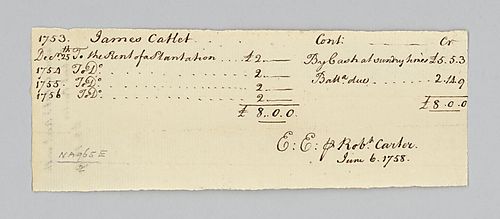 1753. James Catlet . . . Cont. . . . Cr
Decr. 25th To the Rent of a Plantation . . . . £2 .. — By Cash at sundry times £5..5.3
1754 To Do . . . . . . . . . 2 .. — Balla. due . . . 2.14.9
1755. To Do . . . . . . . . . 2 .. — £8..0..0
1756 To Do . . . . . . . . . 2 .. —
£ 8..0..0
E: E: ⅌ Robt. Carter.
June 6. 1758.
NA965E